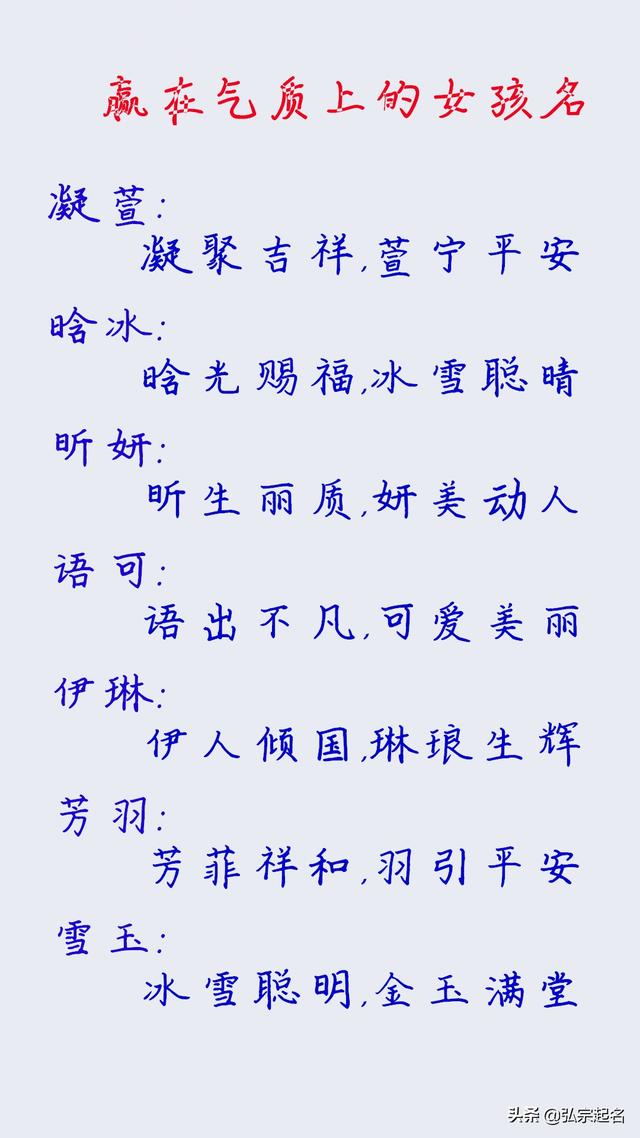 赢在气质上的女孩名
凝萱:
凝聚吉祥,萱宁平安
晗冰:
晗光赐福,冰雪聪晴
昕妍:
昕生丽质,妍美动人
语可:
语出不凡,可爱美丽
伊琳:
伊人倾国,琳琅生辉
芳羽:
芳菲祥和,羽引平安
雪玉:
冰雪聪明,金玉满堂
头条 @弘宗起名